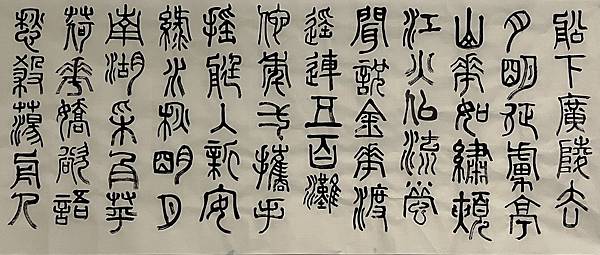 船下廣陵去
月明征虜亭
山華如繡頰
江火似流螢
聞說金華渡
遙連五百灘
他年弌攜手
搖艇入新安
綠水秋明月
南湖采白苹
荷華嬌欲語
愁殺蕩舟人